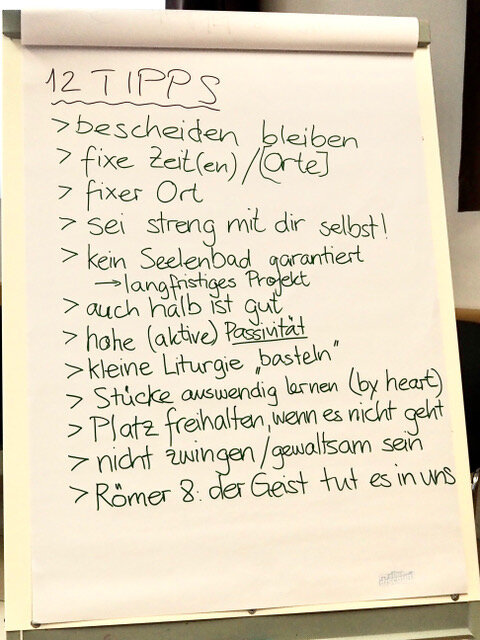 12 TIPPS
> bescheiden bleiben
> fixe Zeit(en)/[Orte]
> fixer Ort
> sei streng mit dir selbst!
> kein Seelenbad garantiert
→ langfristiges Projekt
> auch halb ist gut
> hohe (aktive) Passivität
> kleine Liturgie „basteln"
> Stücke auswendig lernen (by heart)
> Platz freihalten, wenn es nicht geht
> nicht zwingen/gewaltsam sein
> Römer 8: der Geist tut es in uns